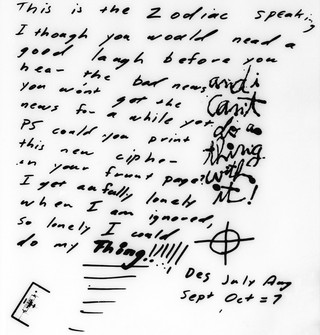 This is the Zodiac speaking
I though you would need a
good laugh before you
hear the bad news
you won't get the
news for a while yet
PS could you print
this new cipher
in your frunt page?
I get awfully lonely
when I am ignored,
So lonely I could
do my Thing!!!!!!
and i
can't
do a
thing
with
it!
Des July Aug
Sept Oct = 7